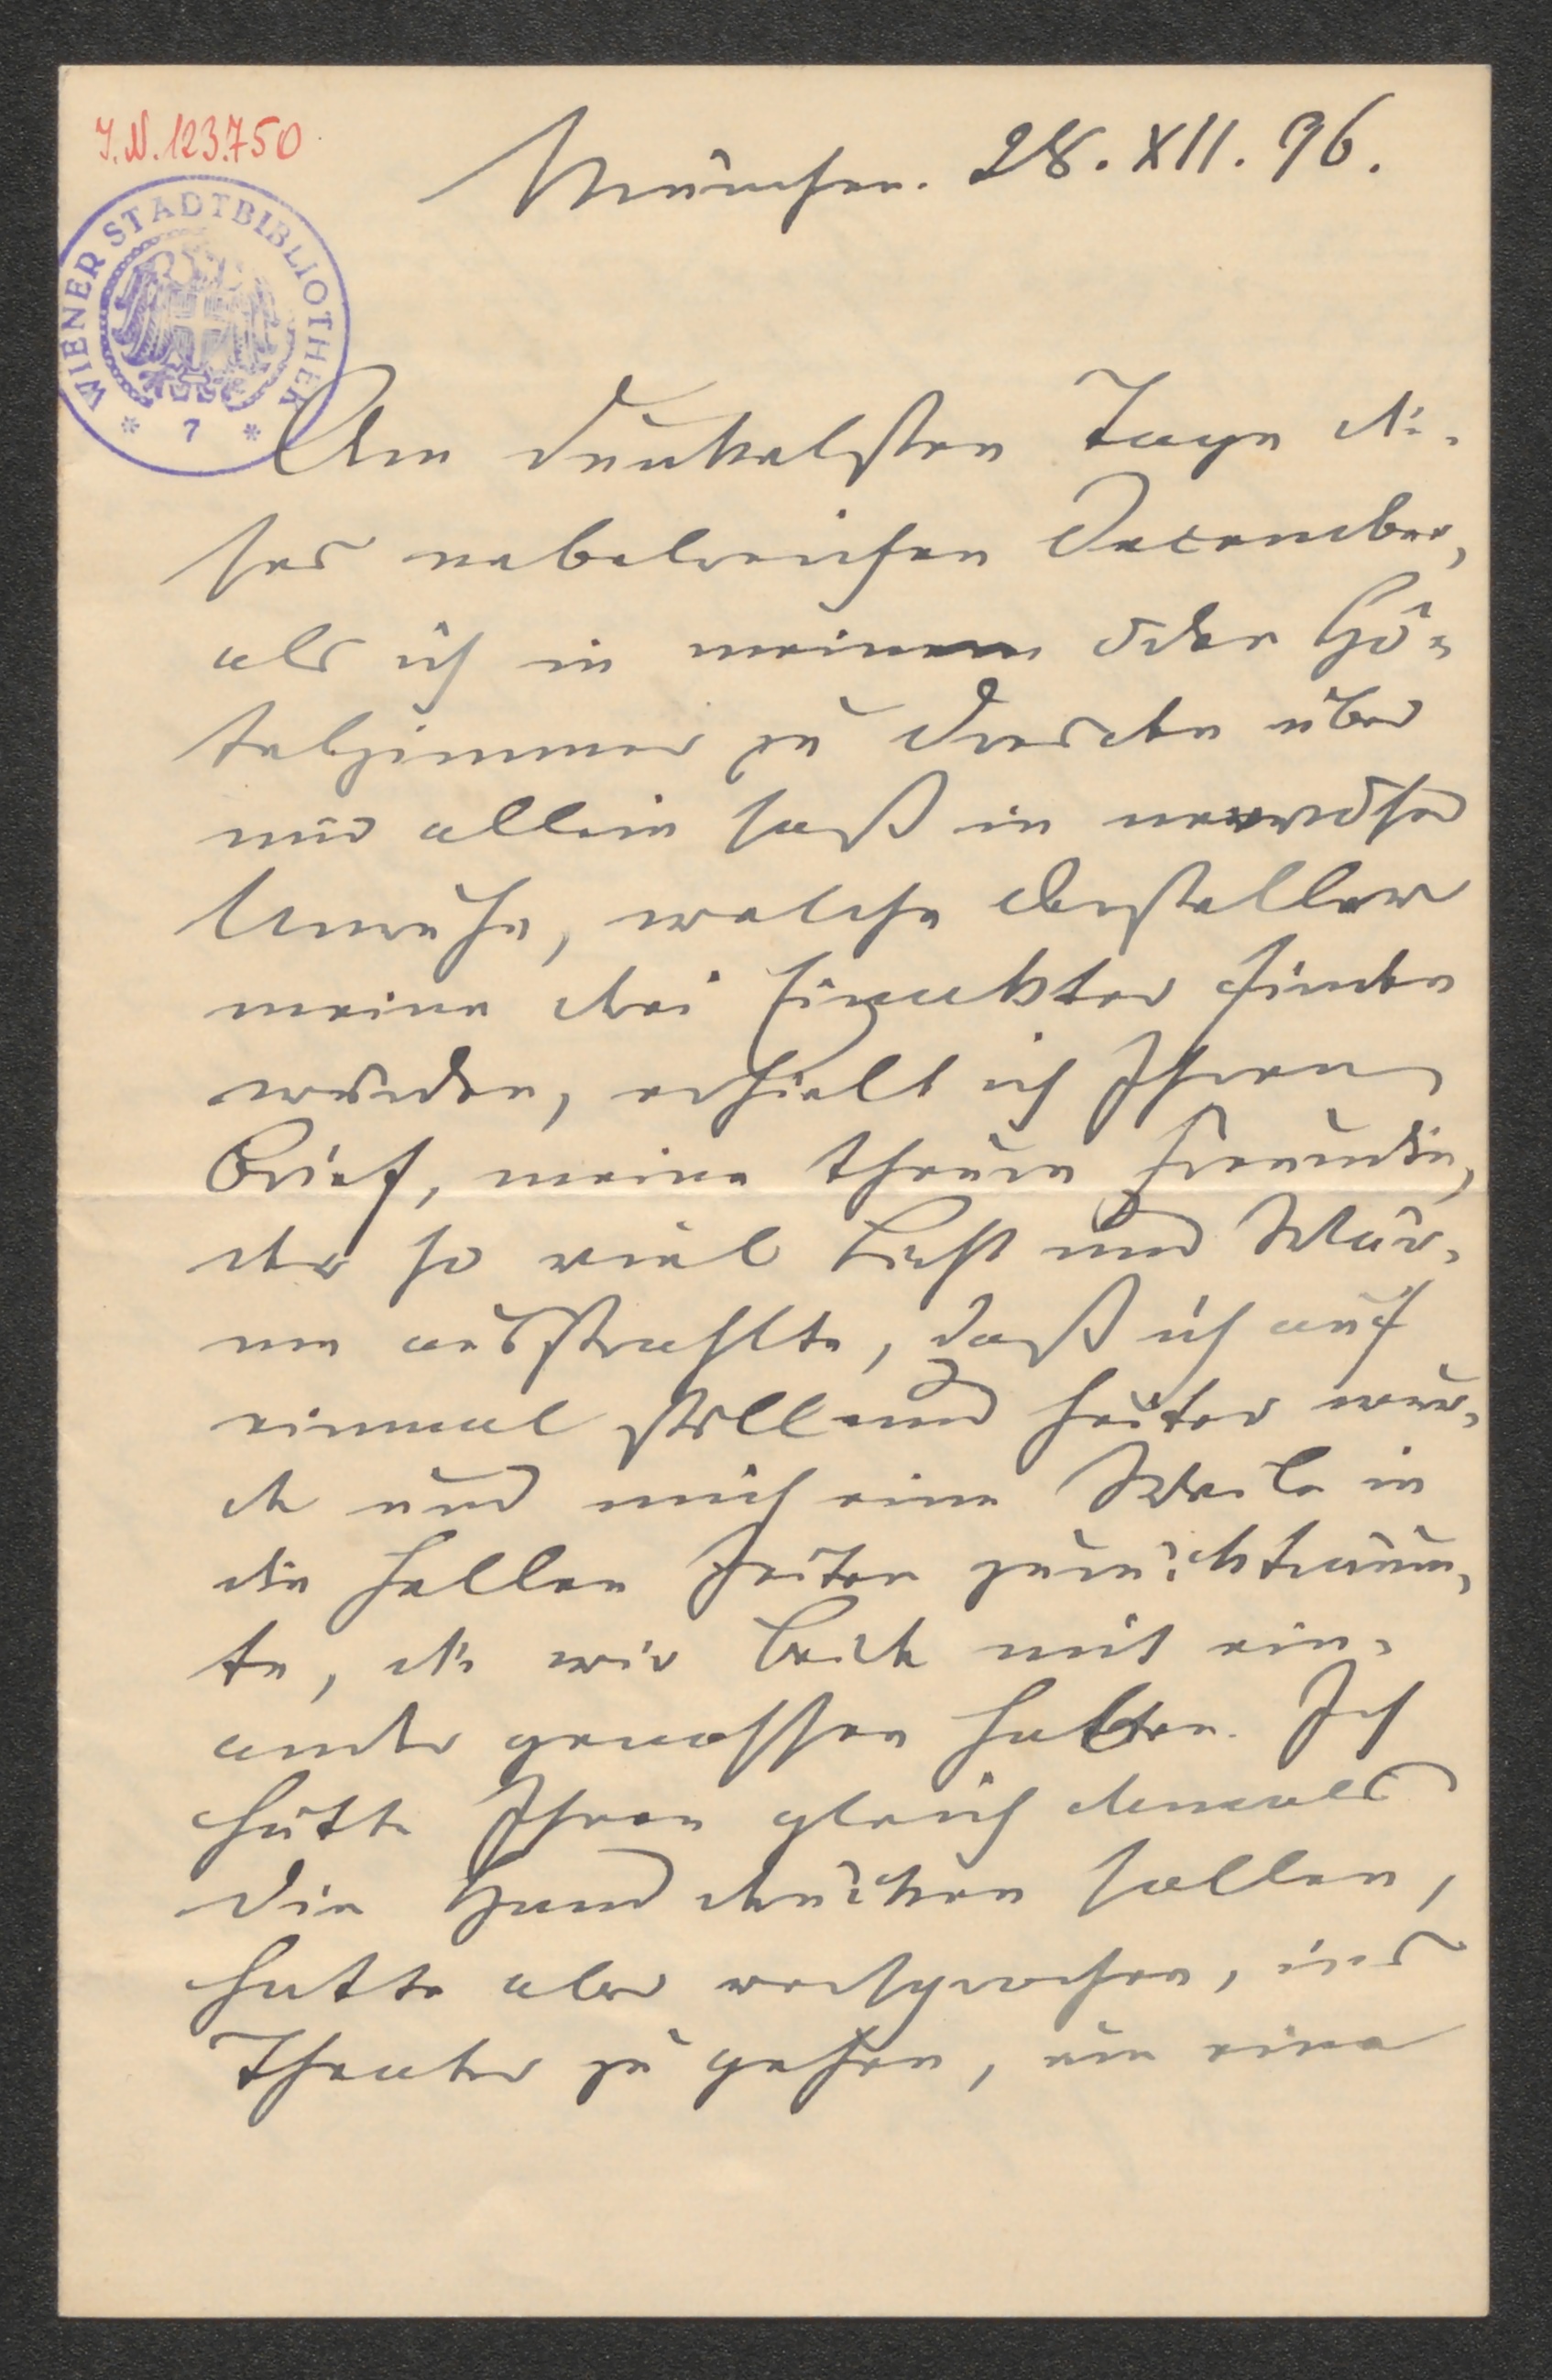 J.N. 123.750
München. 28. XII. 96.
WIENER STADTBIBLIOTHEK
* 7 *
Am dunkelsten Tage die-
ses nebelreichen December,
als ich in meinem öden Hô-
telzimmer zu Dresden über
mir allein saß in nervöser
Unruhe, welche Darsteller
meine drei Einakter finden
würden, erhielt ich Ihren
Brief, meine theure Freundin,
der so viel Licht und Wär-
me ausstrahlte, daß ich auf
einmal still und heiter wur-
de und mich eine Weile in
die hellen Zeiten zurückträum-
te, die wir beide mit ein-
ander genossen hatten. Ich
hätte Ihnen gleich damals
die Hand drücken sollen,
hatte aber versprochen, ins
Theater zu gehen, um eine